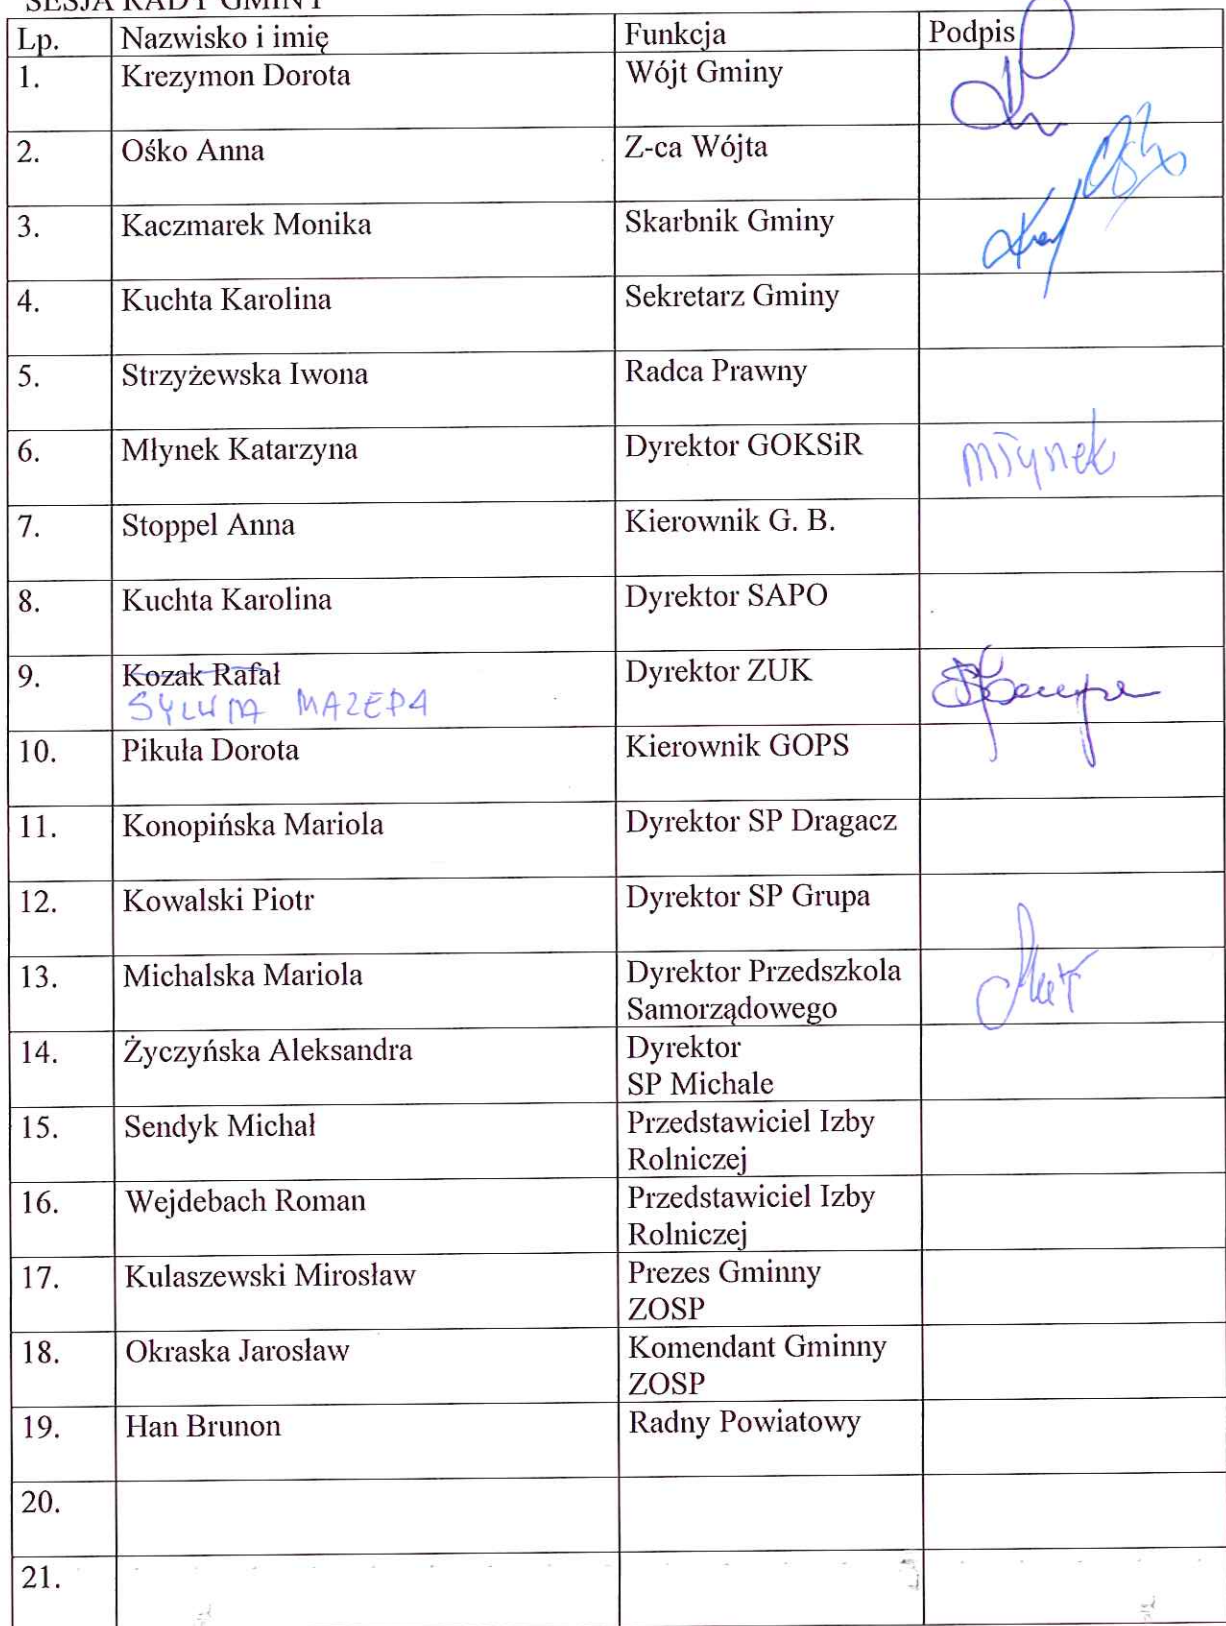 SESJA RADY GMINY
Lp. Nazwisko i imię Funkcja Podpis
1. Krezymon Dorota Wójt Gminy
2. Ośko Anna Z-ca Wójta
3. Kaczmarek Monika Skarbnik Gminy
4. Kuchta Karolina Sekretarz Gminy
5. Strzyżewska Iwona Radca Prawny
6. Młynek Katarzyna Dyrektor GOKSiR Młynek
7. Stoppel Anna Kierownik G. B.
8. Kuchta Karolina Dyrektor SAPO
9. Kozak Rafał Dyrektor ZUK
SYLWIA MAZEPA
10. Pikuła Dorota Kierownik GOPS
11. Konopińska Mariola Dyrektor SP Dragacz
12. Kowalski Piotr Dyrektor SP Grupa
13. Michalska Mariola Dyrektor Przedszkola
Samorządowego
14. Życzyńska Aleksandra Dyrektor
SP Michale
15. Sendyk Michał Przedstawiciel Izby
Rolniczej
16. Wejdebach Roman Przedstawiciel Izby
Rolniczej
17. Kulaszewski Mirosław Prezes Gminny
ZOSP
18. Okraska Jarosław Komendant Gminny
ZOSP
19. Han Brunon Radny Powiatowy
20.
21.